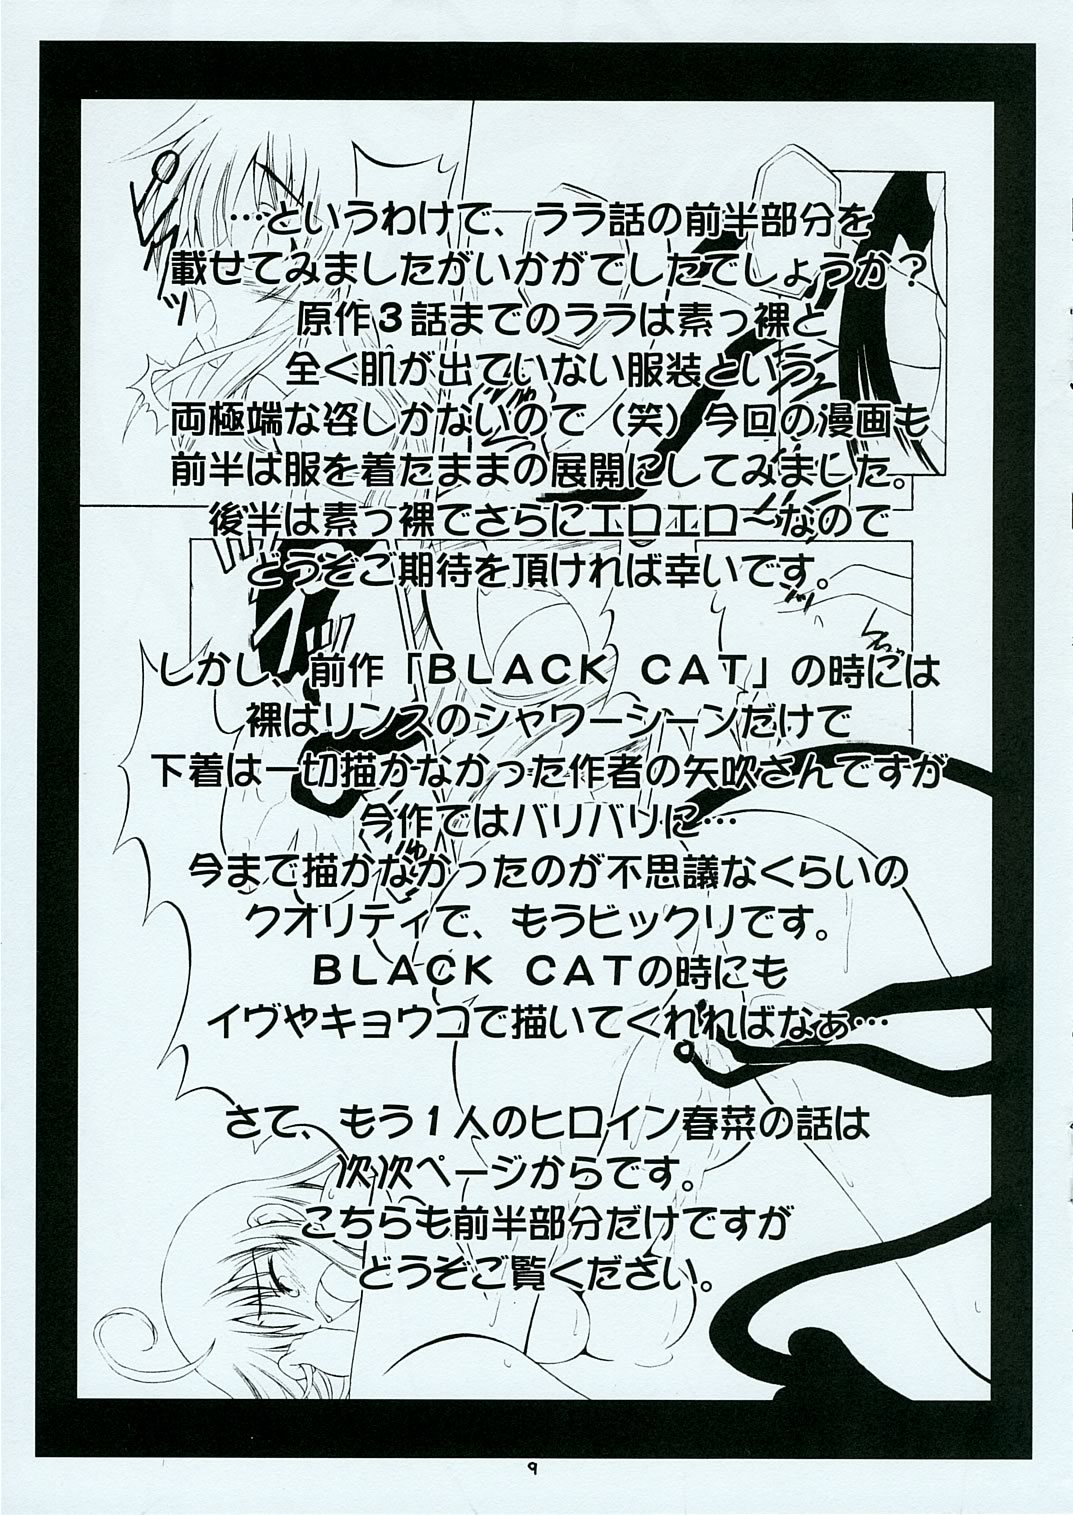 …というわけで、ララ話の前半部分を
載せてみましたがいかがでしたでしょうか?
原作3話までのララは素っ裸と
全く肌が出ていない服装という
両極端な姿しかないので(笑)今回の漫画も
前半は服を着たままの展開にしてみました。
後半は素っ裸でさらにエロエロ~なので
どうぞご期待を頂ければ幸いです。
しかし、前作「BLACK CAT」の時には
裸はリンスのシャワーシーンだけで
下着は一切描かなかった作者の矢吹さんですが
今作ではバリバリに…
今まで描かなかったのが不思議なくらいの
クオリティで、もうビックリです。
BLACK CATの時にも
イヴやキョウコで描いてくれればなぁ…
さて、もう1人のヒロイン春菜の話は
次次ページからです。
こちらも前半部分だけですが
どうぞご覧ください。
9